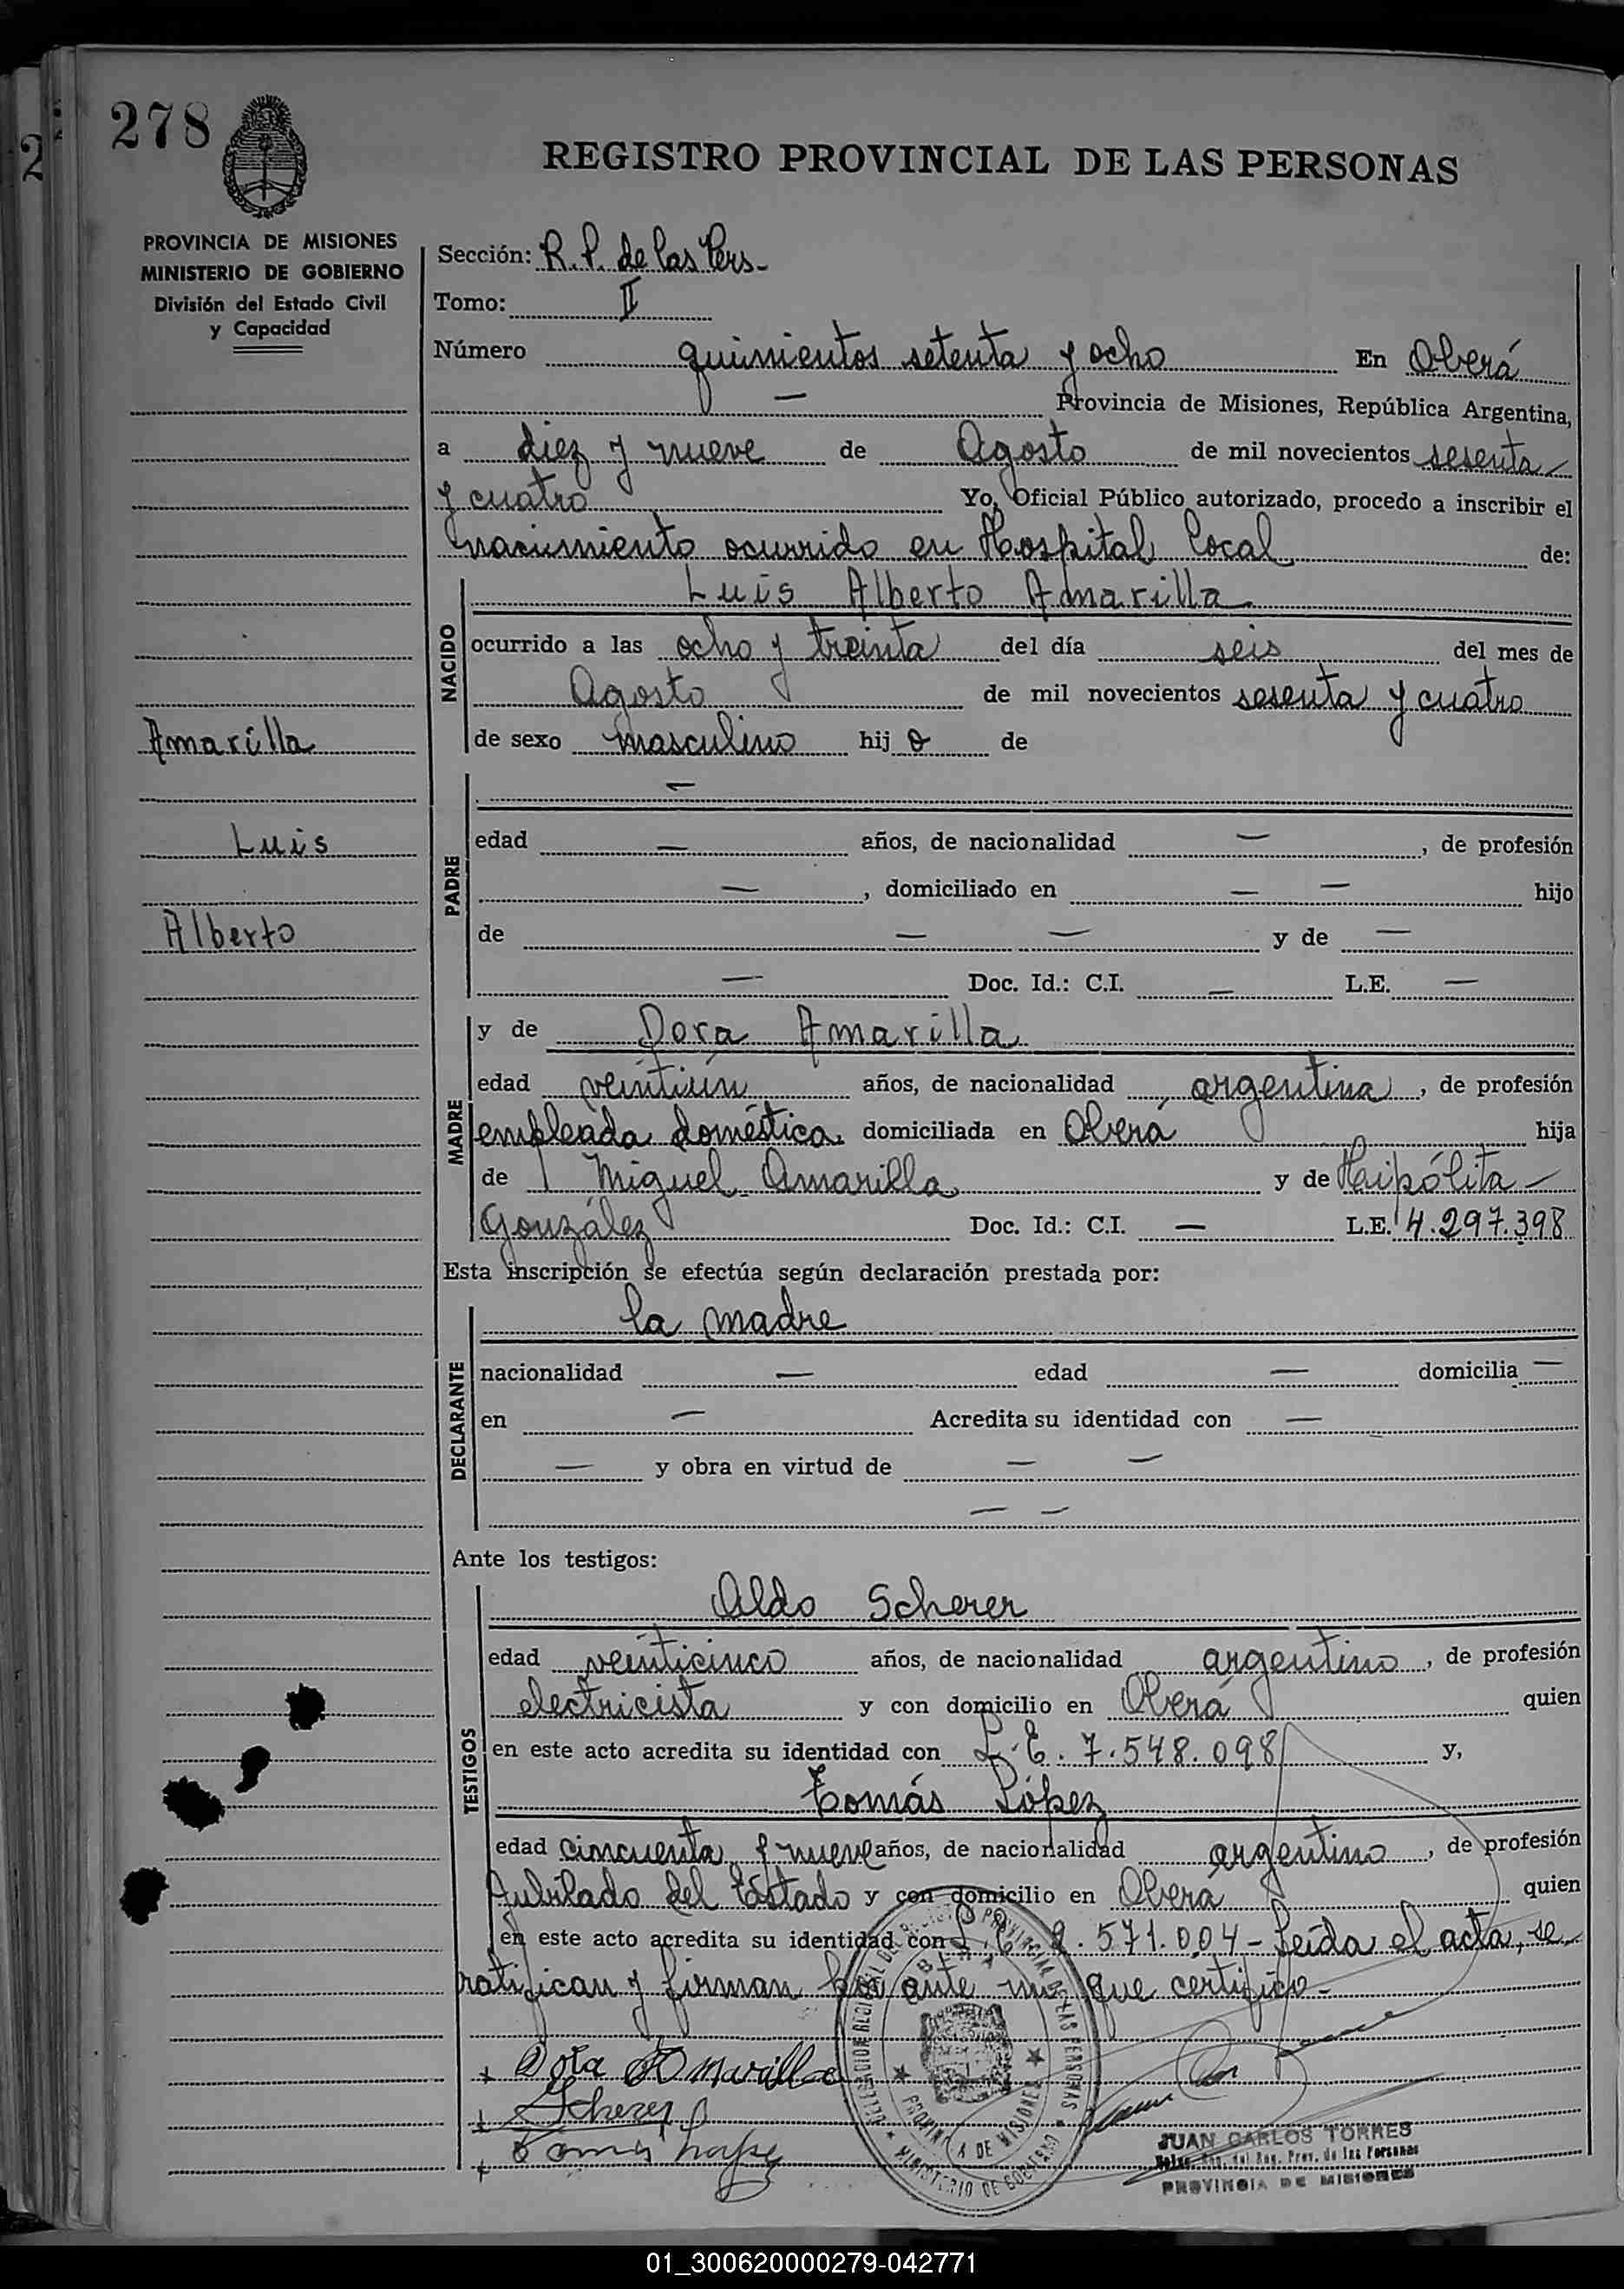 278
REGISTRO PROVINCIAL DE LAS PERSONAS
PROVINCIA DE MISIONES
MINISTERIO DE GOBIERNO
División del Estado Civil
y Capacidad
Sección: R. P. de las Pers-
Tomo: II
Número quinientos setenta y ocho En Oberá
— Provincia de Misiones, República Argentina,
a diez y nueve de Agosto de mil novecientos sesenta
y cuatro Yo, Oficial Público autorizado, procedo a inscribir el
nacimiento ocurrido en Hospital Local de:
NACIDO
Luis Alberto Amarilla
ocurrido a las ocho y treinta del día seis del mes de
Agosto de mil novecientos sesenta y cuatro
de sexo masculino hij o de
Amarilla
Luis
Alberto
PADRE
—
edad — años, de nacionalidad —, de profesión
—, domiciliado en — — hijo
de — — y de —
— Doc. Id.: C.I. — L.E. —
MADRE
y de Dora Amarilla
edad veintiún años, de nacionalidad argentina, de profesión
empleada doméstica domiciliada en Oberá hija
de Miguel Amarilla y de Haipólita —
González Doc. Id.: C.I. — L.E. 4.297.398
Esta inscripción se efectúa según declaración prestada por:
DECLARANTE
la madre
nacionalidad — edad — domicilia —
en — Acredita su identidad con —
— y obra en virtud de — —
— —
Ante los testigos:
TESTIGOS
Aldo Scherer
edad veinticinco años, de nacionalidad argentino, de profesión
electricista y con domicilio en Oberá quien
en este acto acredita su identidad con L.E. 7.548.098 y,
Tomás López
edad cincuenta y nueve años, de nacionalidad argentino, de profesión
Jubilado del Estado y con domicilio en Oberá quien
en este acto acredita su identidad con 2.571.004- Leída el acta, se
ratifican y firman por ante mi que certifico-
Dora Amarilla
Scherer
Tomás
MINISTERIO DE GOBIERNO
PROVINCIA DE MISIONES
JUAN CARLOS TORRES
Prov. de las Personas
PROVINCIA DE MISIONES
01_300620000279-042771